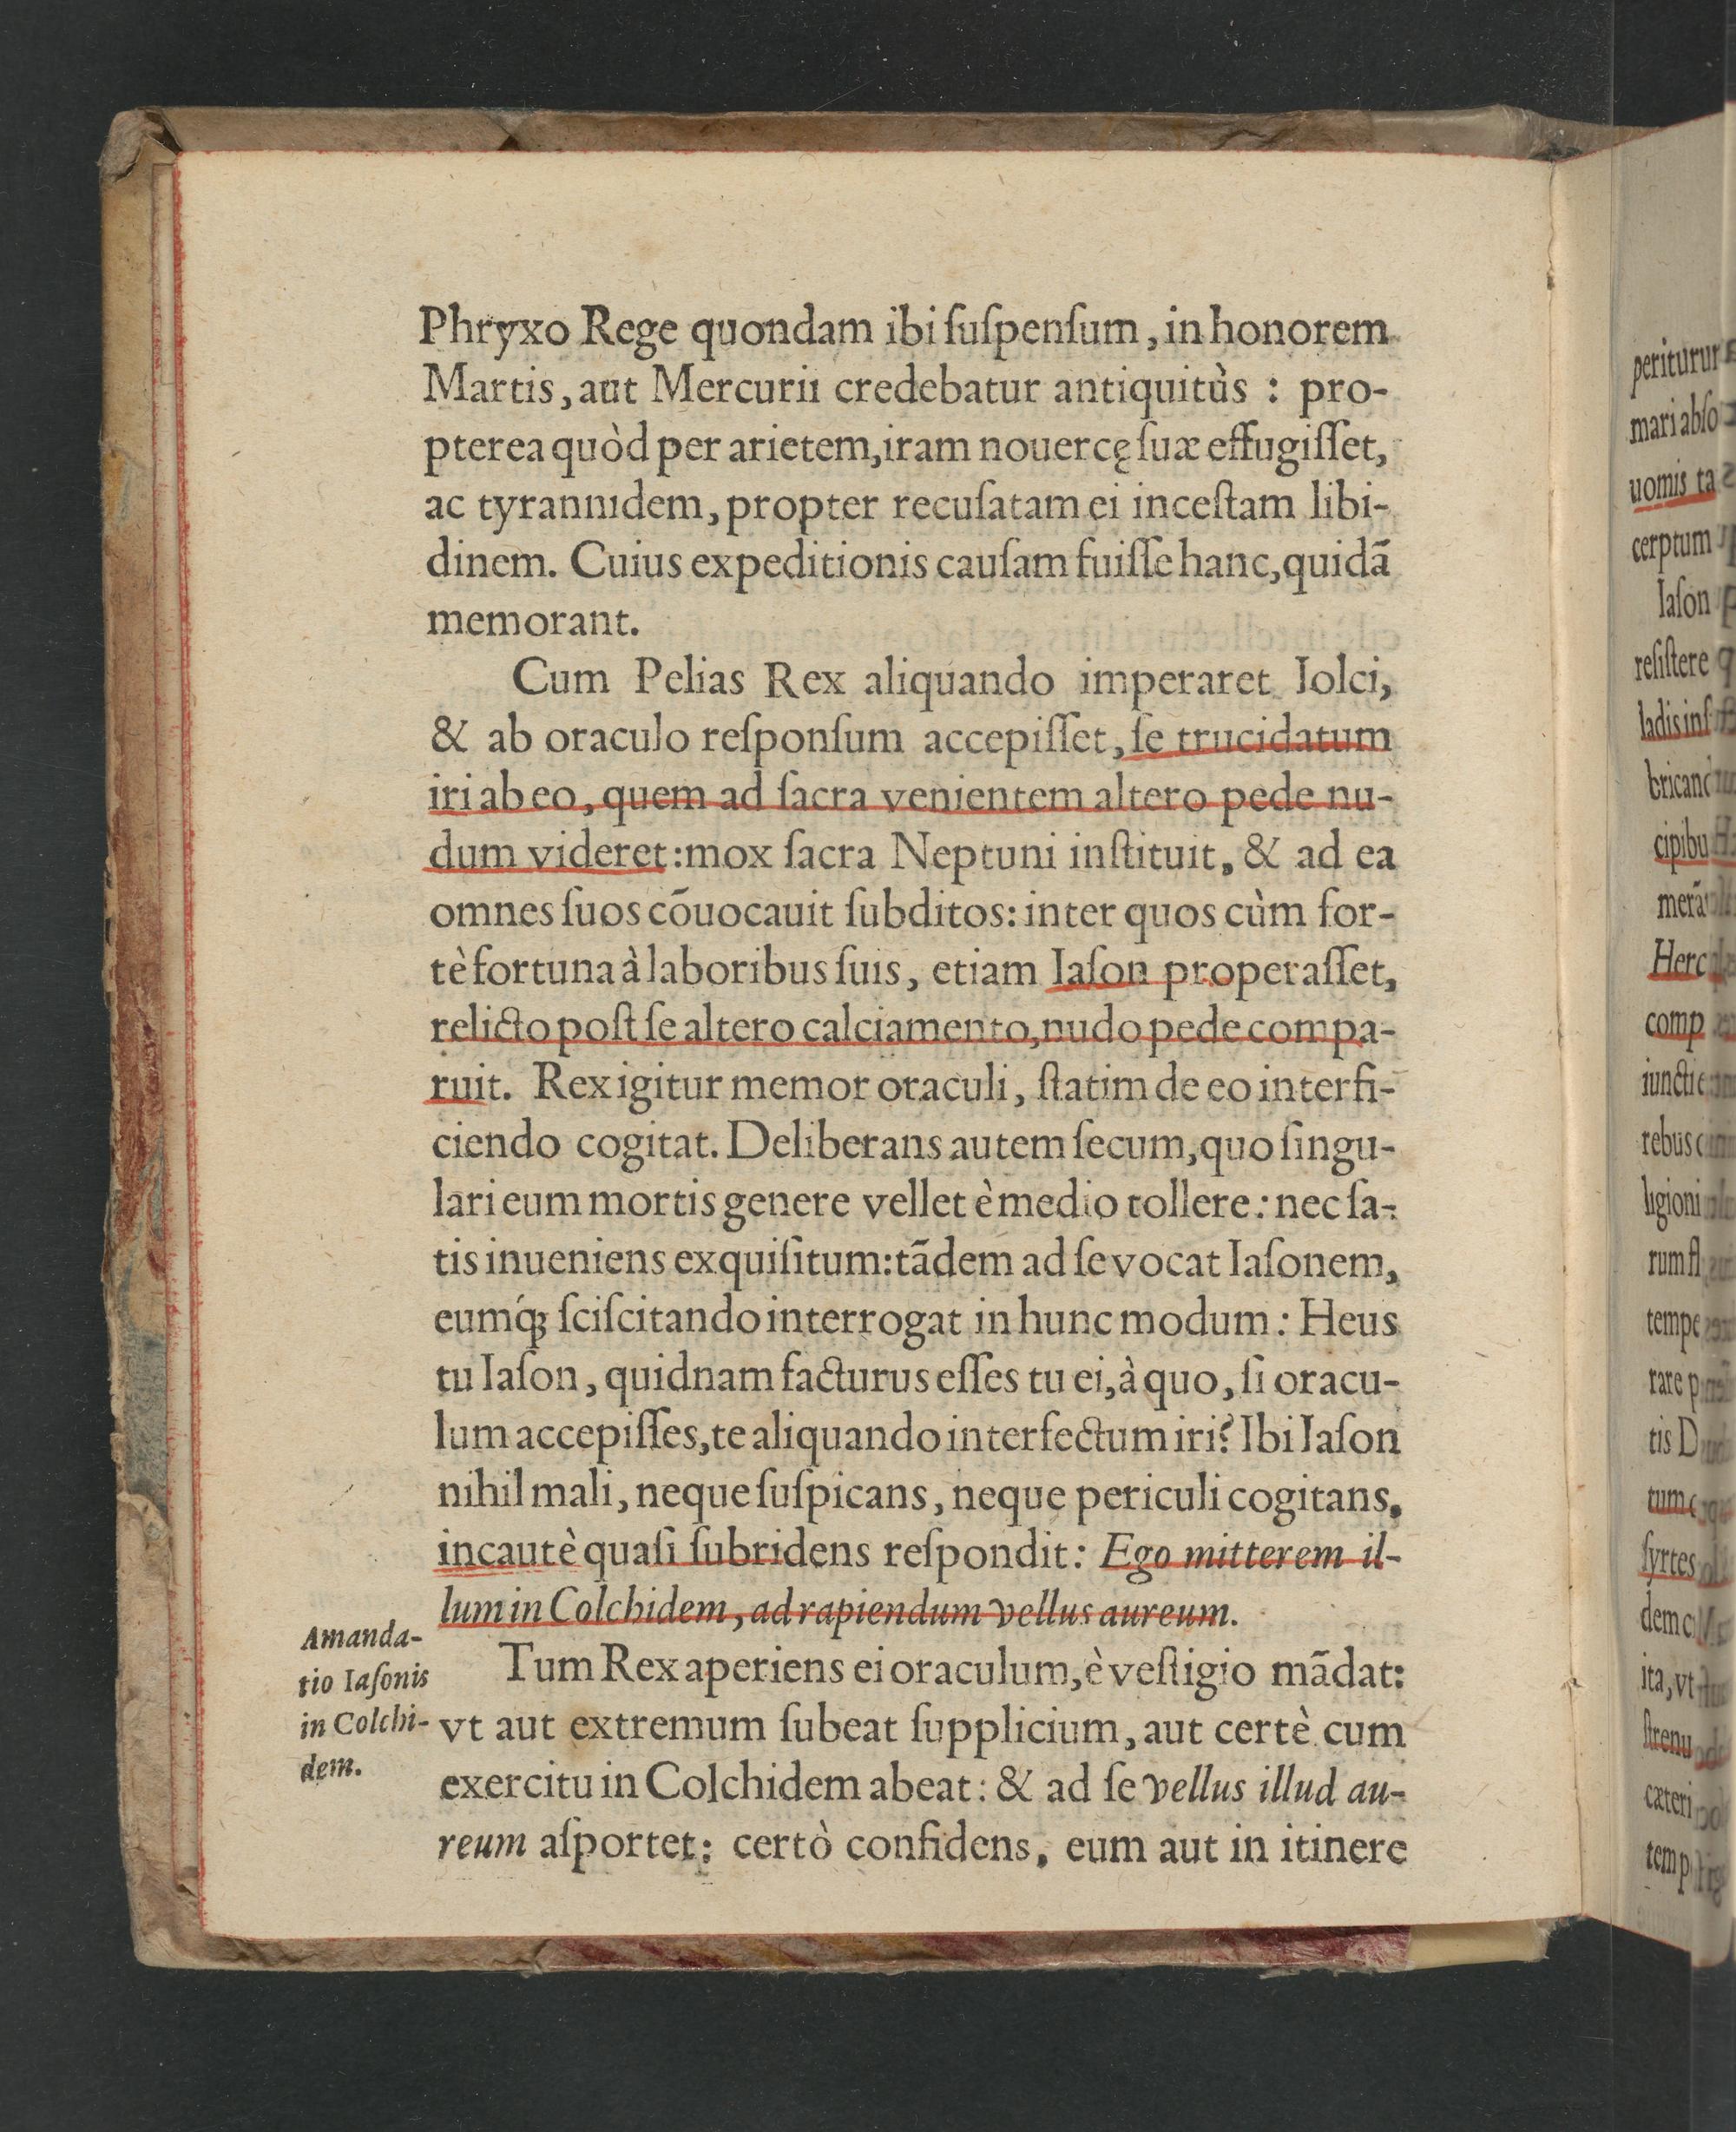 Phryxo Rege quondam ibi ſuſpenſum, in honorem
Martis, aut Mercurii credebatur antiquitùs : pro-
pterea quòd per arietem, iram nouercę ſuæ effugiſſet,
ac tyrannidem, propter recuſatam ei inceſtam libi-
dinem. Cuius expeditionis cauſam fuiſſe hanc, quidā
memorant.
Cum Pelias Rex aliquando imperaret Iolci,
& ab oraculo reſponſum accepiſſet, ſe trucidatum
iri ab eo, quem ad ſacra venientem altero pede nu-
dum videret: mox ſacra Neptuni inſtituit, & ad ea
omnes ſuos cōuocauit ſubditos: inter quos cùm for-
tè fortuna à laboribus ſuis, etiam Iaſon properaſſet,
relicto poſt ſe altero calciamento, nudo pede compa-
ruit. Rex igitur memor oraculi, ſtatim de eo interfi-
ciendo cogitat. Deliberans autem ſecum, quo ſingu-
lari eum mortis genere vellet è medio tollere: nec ſa-
tis inueniens exquiſitum: tādem ad ſe vocat Iaſonem,
eumq́ꝫ ſciſcitando interrogat in hunc modum: Heus
tu Iaſon, quidnam facturus eſſes tu ei, à quo, ſi oracu-
lum accepiſſes, te aliquando interfectum iri? Ibi Iaſon
nihil mali, neque ſuſpicans, neque periculi cogitans,
incautè quaſi ſubridens reſpondit: Ego mitterem il-
lum in Colchidem, ad rapiendum vellus aureum.
Amanda-
tio Iaſonis
in Colchi-
dem.
Tum Rex aperiens ei oraculum, è veſtigio mādat:
vt aut extremum ſubeat ſupplicium, aut certè cum
exercitu in Colchidem abeat: & ad ſe vellus illud au-
reum aſportet: certò confidens, eum aut in itinere
periturur
mari abſo
uomis ta
cerptum
Iaſon
reſiſtere
ladis inſ
bricand
cipibu
merā
Herc
comp
iunctie
rebus c
ligioni
rum fl
tempe
rare p
tis D
tum
ſyrtes
dem c
ita, vt
ſtrenu
cæteri
temp